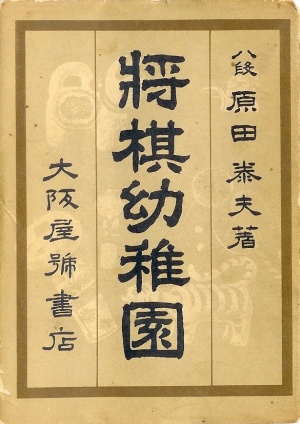 八段 原田泰夫著
將棋幼稚園
大阪屋號書店